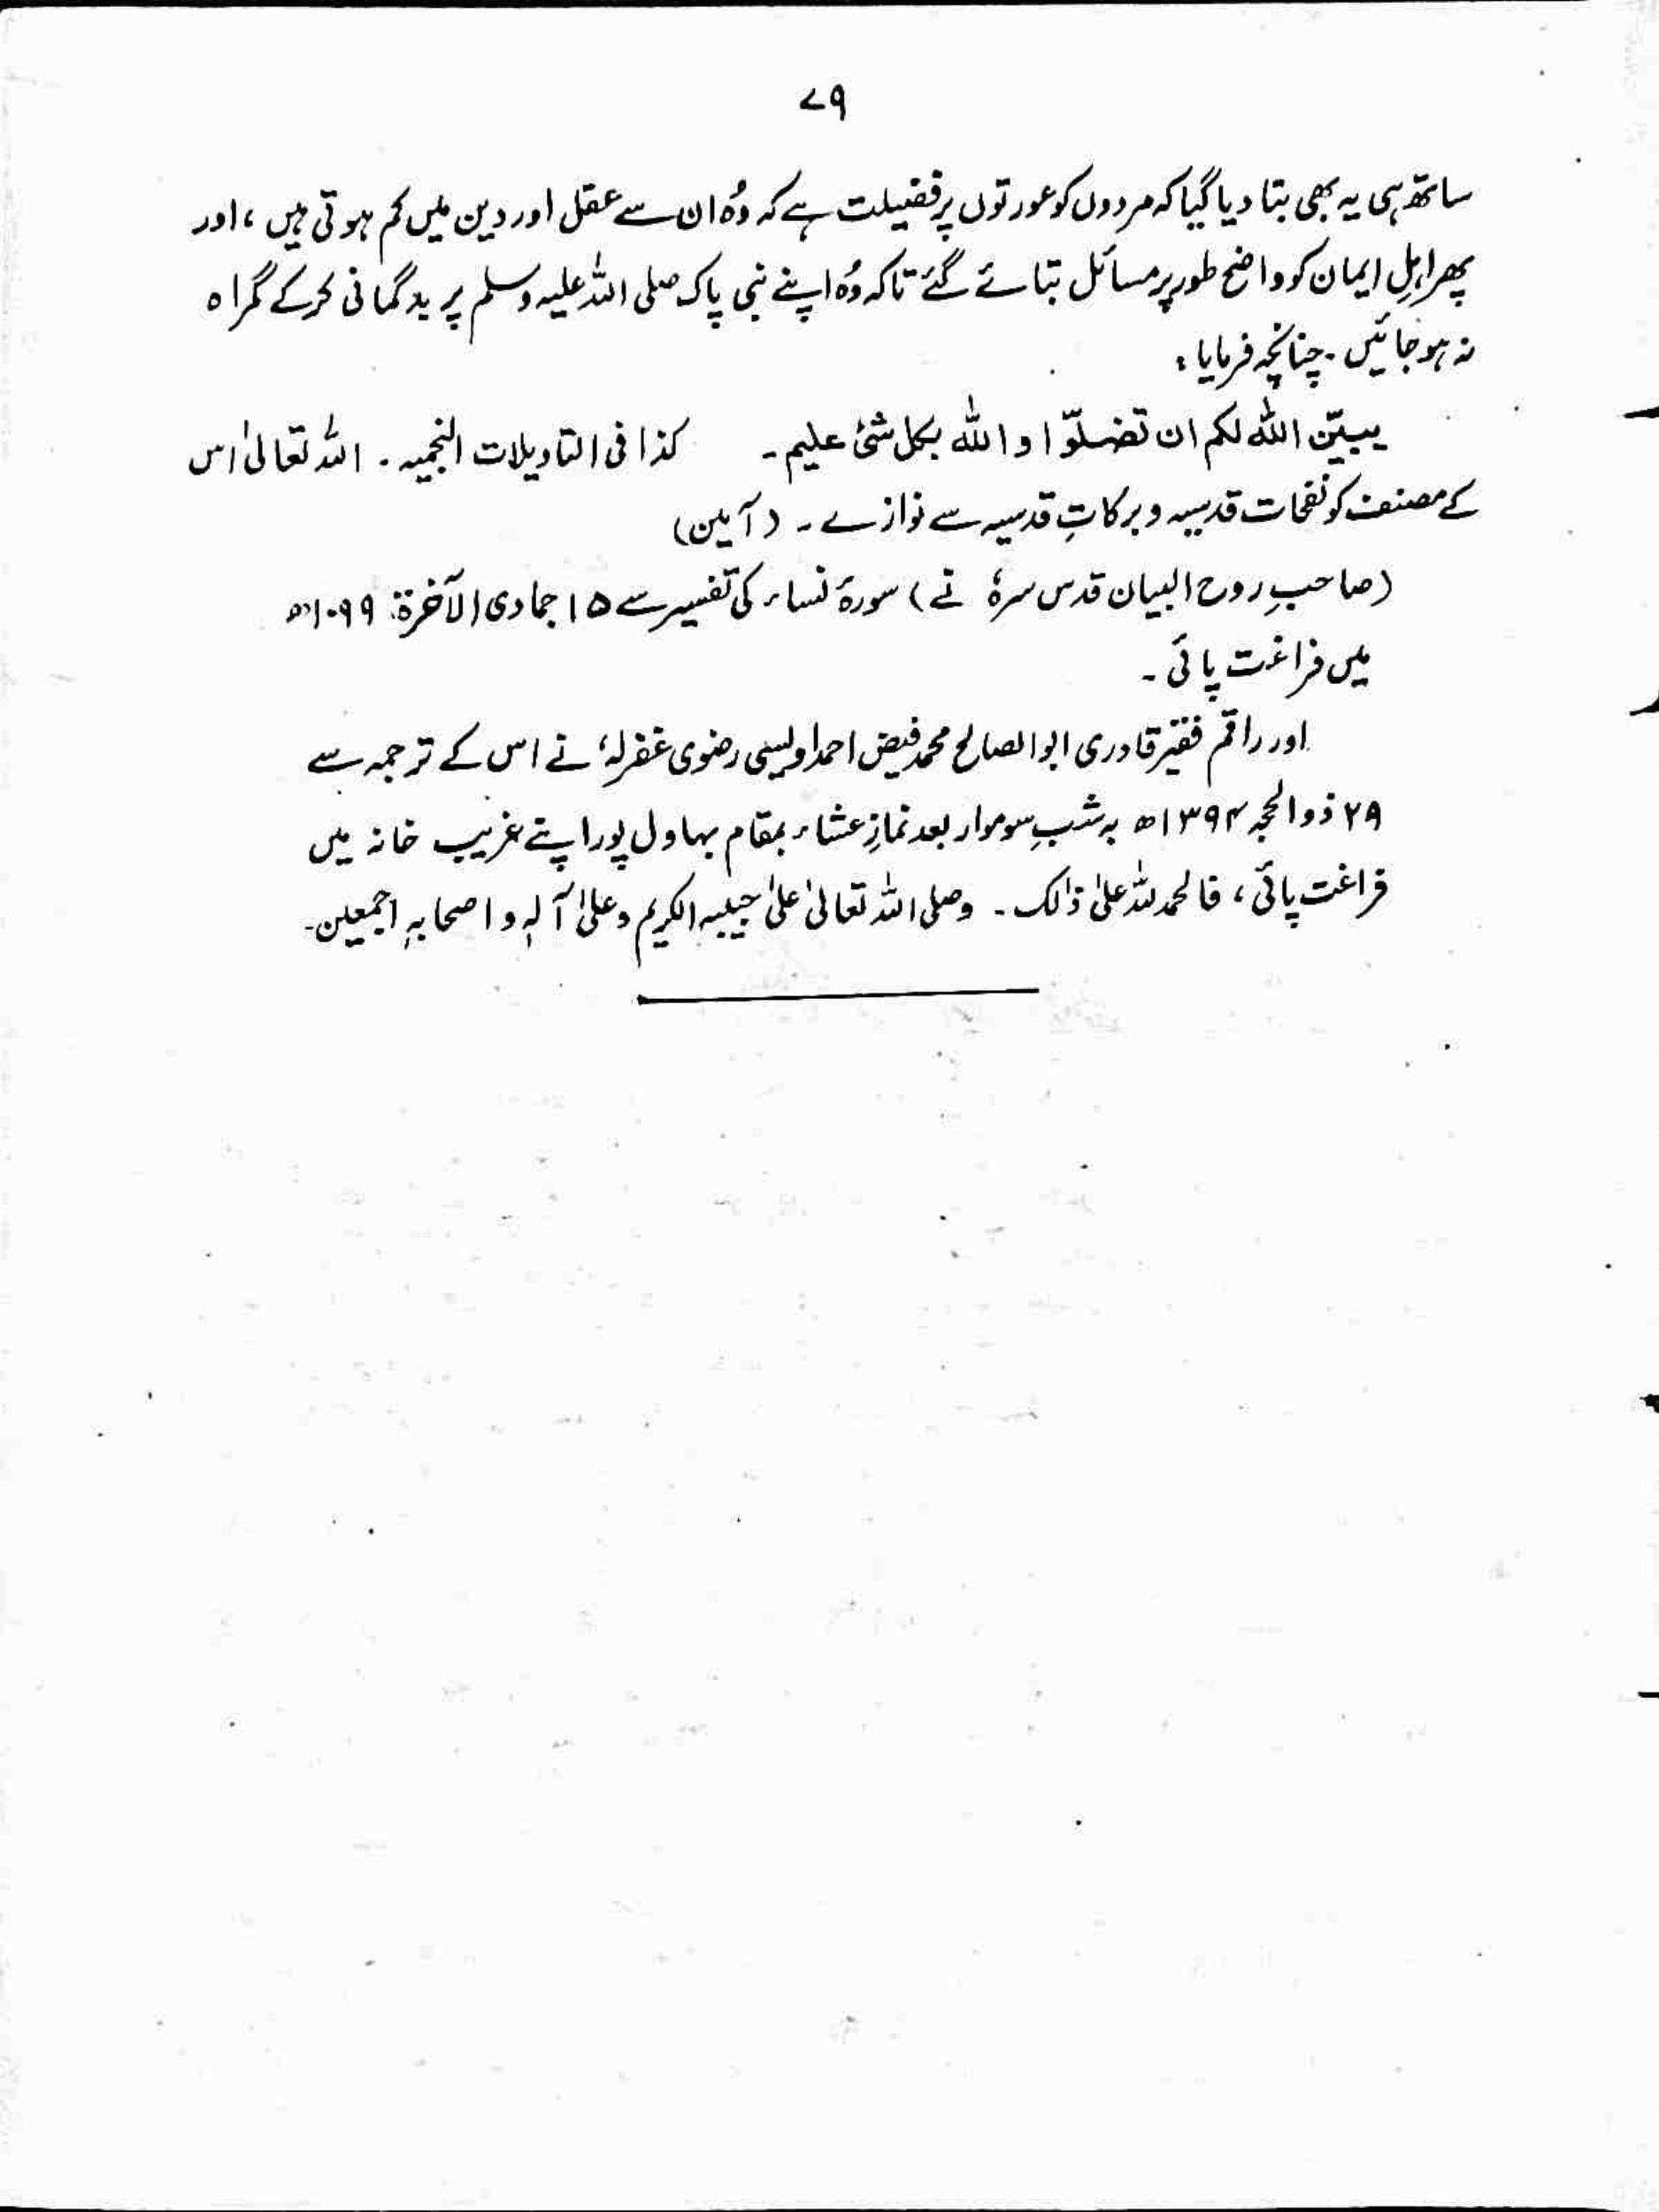 ۷۹
ساتھ ہی یہ بھی بتا دیا گیا کہ مردوں کو عورتوں پر فضیلت ہے کہ وُہ ان سے عقل اور دین میں کم ہوتی ہیں ، اور
پھر اہلِ ایمان کو واضح طور پر مسائل بتائے گئے تاکہ وُہ اپنے نبی پاک صلی اللہ علیہ وسلم پر بدگمانی کرکے گمراہ
نہ ہو جائیں ۔ چنانچہ فرمایا :
یبیّن اللہ لکم ان تضلّوا و اللہ بکل شئ علیم ۔ کذا فی التاویلات النجمیہ ۔ اللہ تعالیٰ اس
کے مصنف کو نفحات قدسیہ و برکاتِ قدسیہ سے نوازے ۔ (آمین)
(صاحبِ روح البیان قدس سرہٗ نے) سورۂ نساء کی تفسیر سے ۱۵ جمادی الآخرۃ ۱۰۹۹ھ
میں فراغت پائی ۔
اور راقم فقیر قادری ابوالصالح محمد فیض احمد اویسی رضوی غفرلہٗ نے اس کے ترجمہ سے
۲۹ ذوالحجہ ۱۳۹۴ھ بہ شبِ سوموار بعد نمازِ عشاء بمقام بہاول پور اپنے غریب خانہ میں
فراغت پائی ، فالحمد للہ علیٰ ذٰلک ۔ وصلی اللہ تعالیٰ علیٰ حبیبہ الکریم وعلیٰ آلہٖ و اصحابہٖ اجمعین ۔